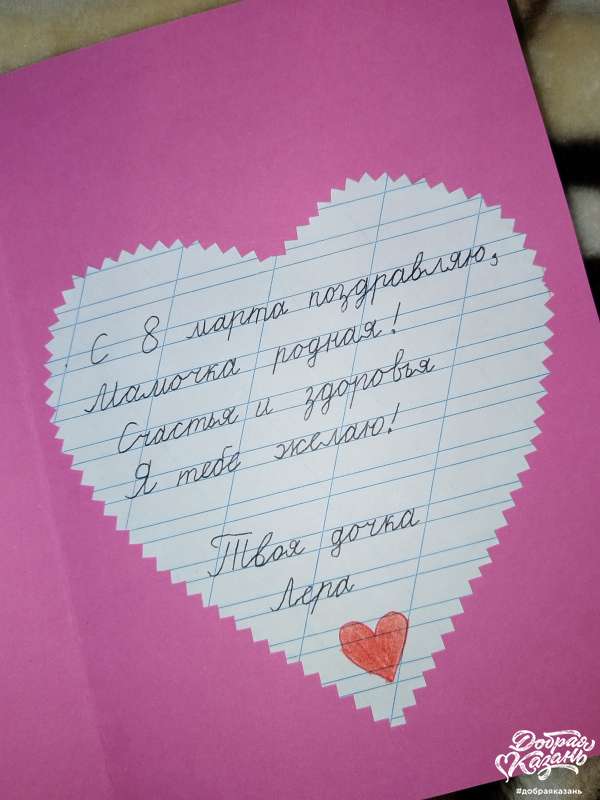 С 8 марта поздравляю,
Мамочка родная!
Счастья и здоровья
Я тебе желаю!
Твоя дочка
Лера
Добрая
Казань
#добраяказань